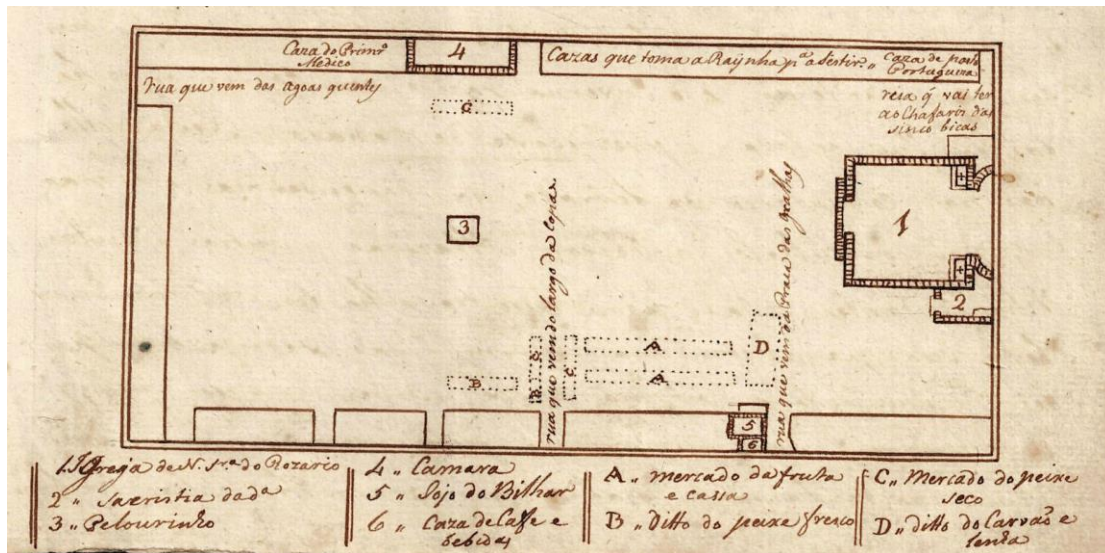 Caza do Primrº
Medico
4
Cazas que toma a Raÿnha pª a Sestir „
Caza de pasto
Portugueza
rua que vem das agoas quentes
reia q̃ vai ter
ao Chafaris das
sinco bicas
C
3
1
2
rua que vem do largo da Copa
rua que vem da Praia das gralhas
A
A
B
C
D
5
6
1 Igreja de N. Srª do Rozario
2 „ Sacristia da dª
3 „ Pelourinho
4 „ Camara
5 „ Sojo do Bilhar
6 „ Caza de Caffe e
bebidas
A „ mercado da fruta
e cassa
B „ Ditto do peixe fresco
C „ Mercado do peixe
seco
D „ ditto do Carvaõ e
lenha